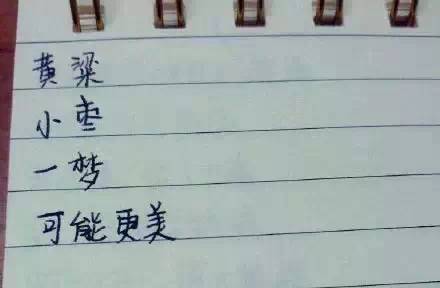 黄粱
小枣
一梦
可能更美